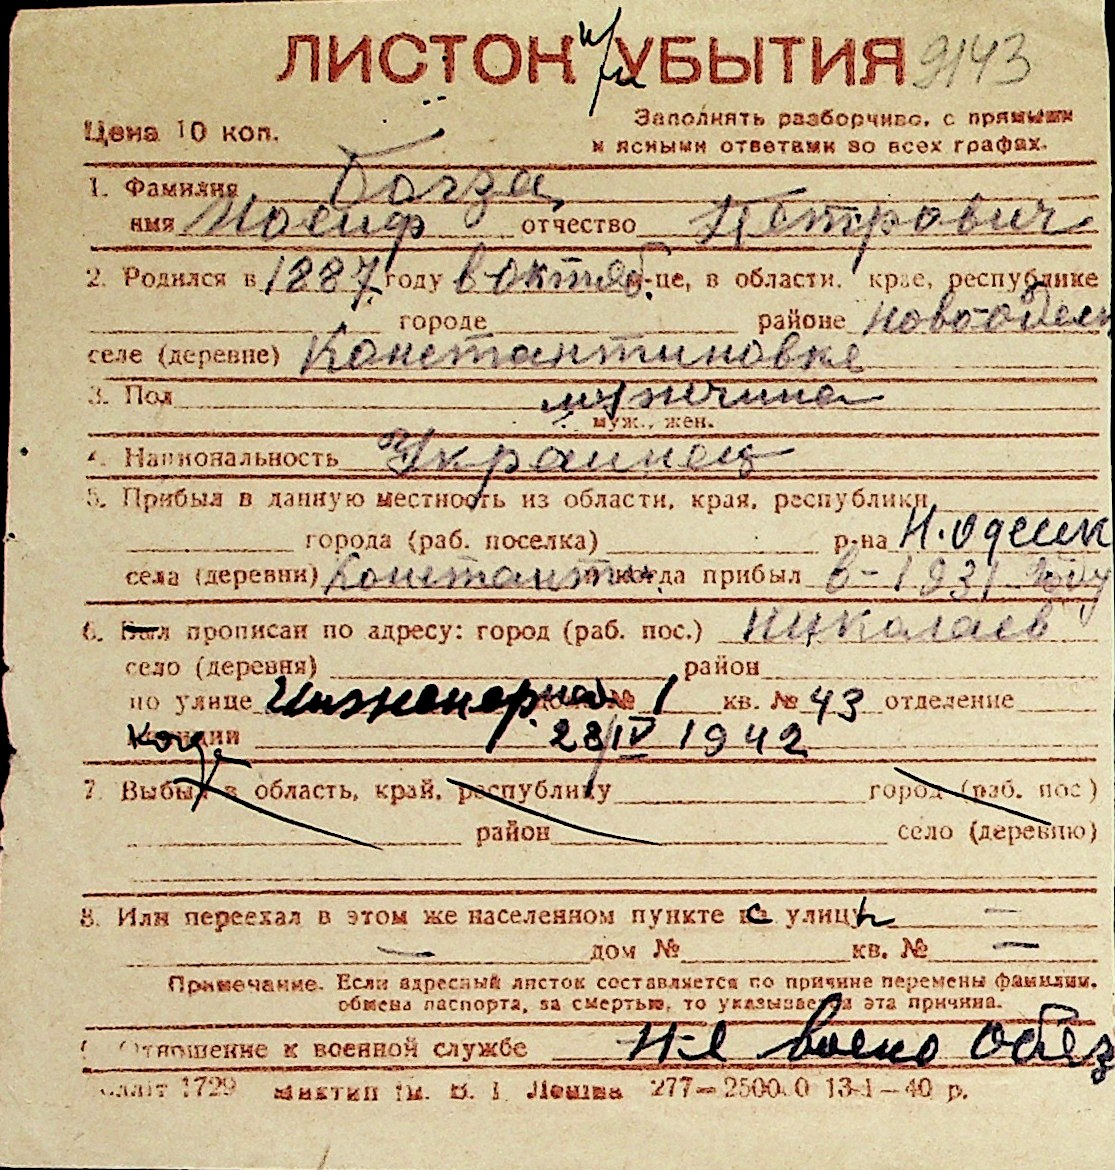 ЛИСТОК УБЫТИЯ 9143
Цена 10 коп.
Заполнять разборчиво, с прямыми
и ясными ответами во всех графах.
1. Фамилия Богза
имя Иосиф отчество Петрович
2. Родился в 1887 году в октяб. м-це, в области, крае, республике
городе районе Ново-одеск
селе (деревне) Константиновке
3. Пол мужчина
муж., жен.
4. Национальность Украинец
5. Прибыл в данную местность из области, края, республики
города (раб. поселка) р-на Н. Одесск
села (деревни) Констант. когда прибыл в-1931 году
6. Был прописан по адресу: город (раб. пос.) Николаев
село (деревня) район
по улице Инженерная дом № 1 кв. № 43 отделение
когда 28/IV 1942
7. Выбыл в область, край, республику город (раб. пос)
район село (деревню)
8. Или переехал в этом же населенном пункте с улицы —
— дом № кв. № —
Примечание. Если адресный листок составляется по причине перемены фамилии,
обмена паспорта, за смертью, то указывается эта причина.
Отношение к военной службе Н-е воено обяз
1729 277—25000 13-1—40 р.